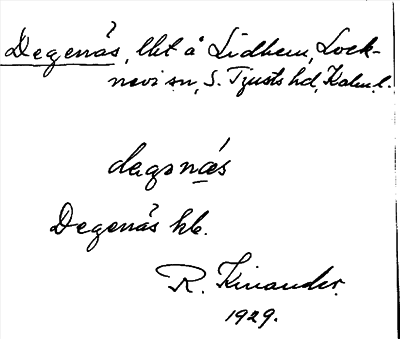 Degenäs, lht å Lidhem, Lock-
nevi sn, S. Tjusts hd, Kalm. l.
degənä́s
Degenäs hb.
R. Kinander.
1929.